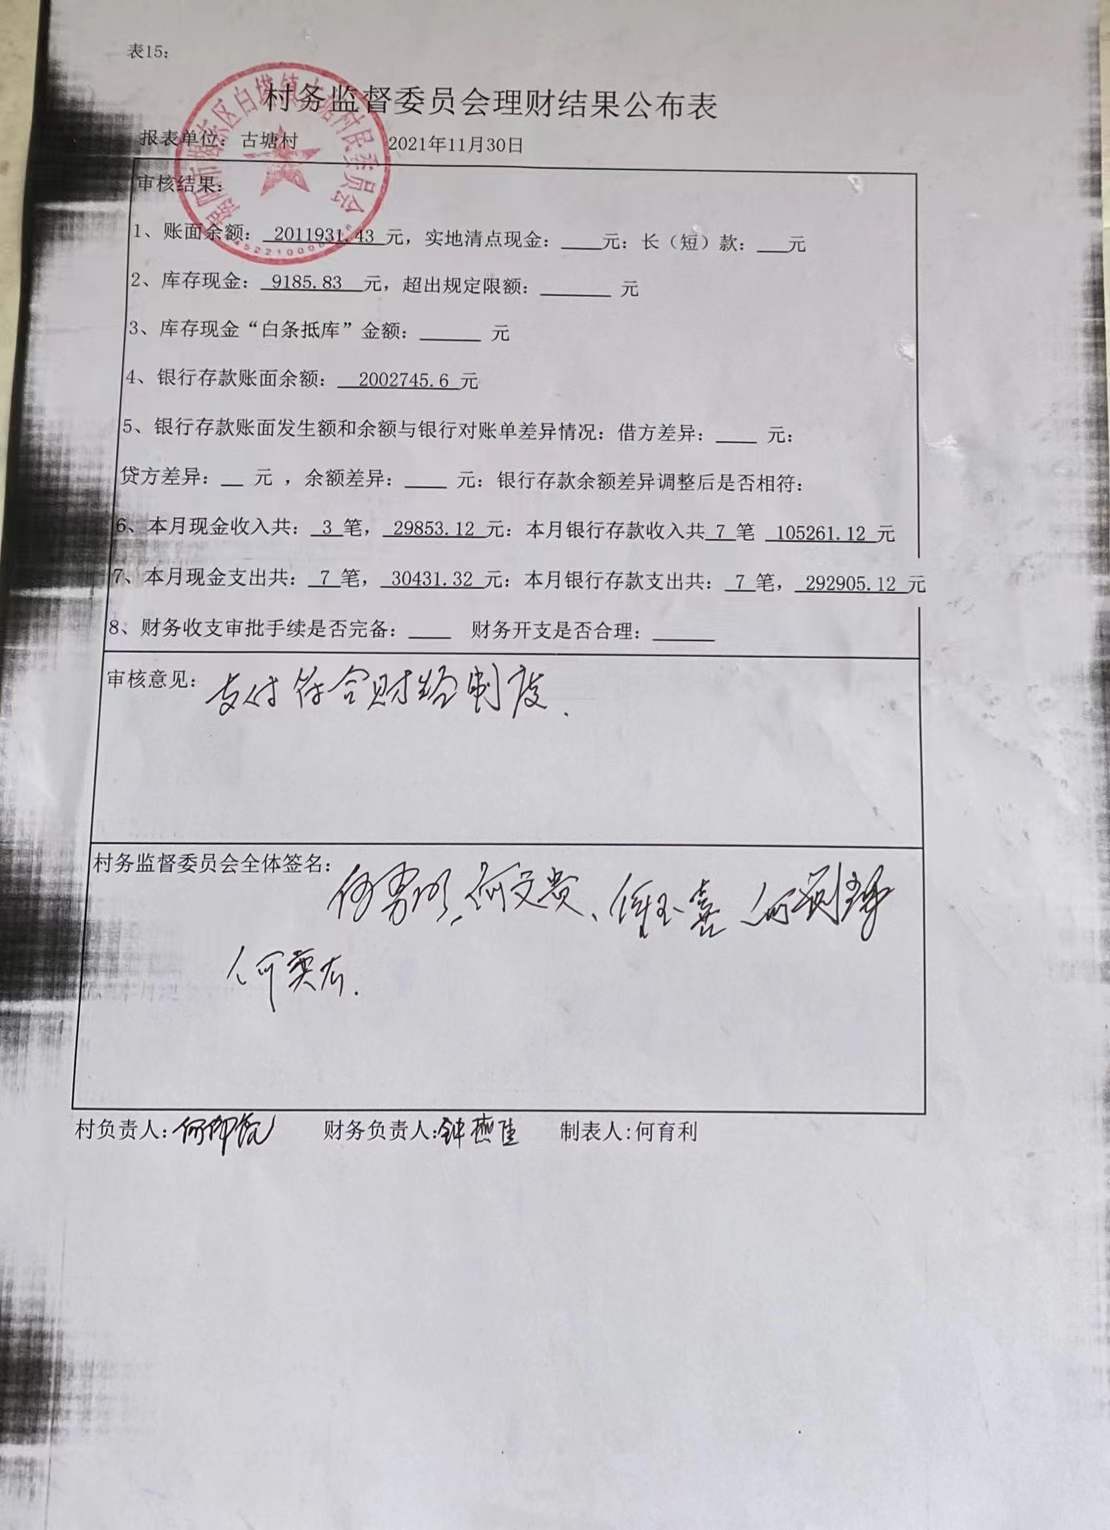 表15：
村务监督委员会理财结果公布表
报表单位：古塘村 2021年11月30日
审核结果：
1、账面余额：2011931.43元，实地清点现金：____元：长（短）款：___元
2、库存现金：9185.83元，超出规定限额：_______ 元
3、库存现金“白条抵库”金额：______ 元
4、银行存款账面余额：2002745.6元
5、银行存款账面发生额和余额与银行对账单差异情况：借方差异：____ 元：
贷方差异：__ 元 ，余额差异：____ 元：银行存款余额差异调整后是否相符：
6、本月现金收入共：3笔，29853.12元：本月银行存款收入共7笔 105261.12元
7、本月现金支出共：7笔，30431.32元：本月银行存款支出共：7笔，292905.12元
8、财务收支审批手续是否完备：____ 财务开支是否合理：______
审核意见：支付符合财经制度.
村务监督委员会全体签名：
何文贵、
村负责人： 财务负责人：钟燕佳 制表人:何育利